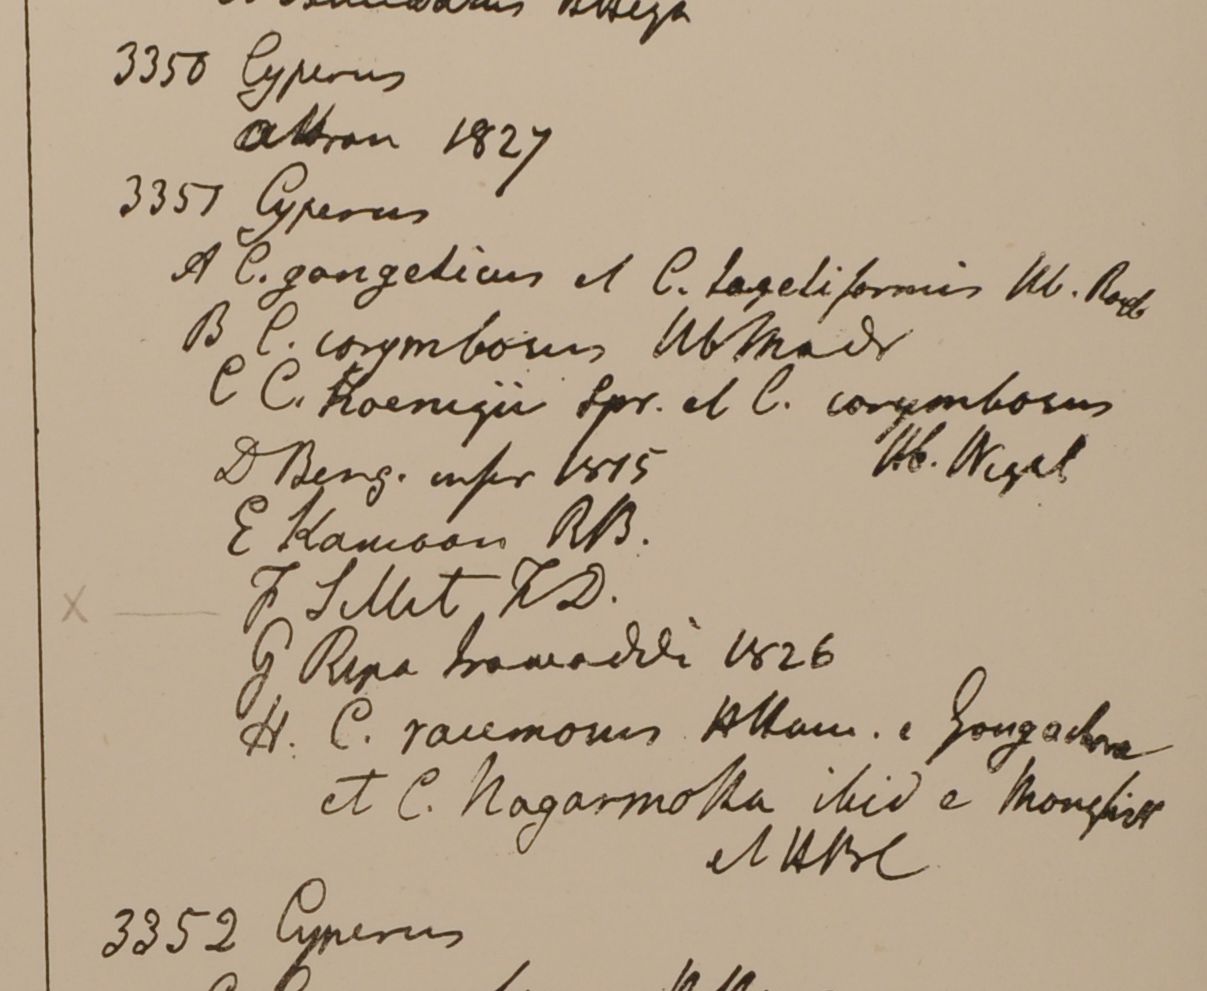 3350 Cyperus
Attran 1827
3351 Cyperus
A C. gangeticus et C. tegetiformis Hb. Roxb
B C. corymbosus Hb Madr
C C. Koenigii Spr. et C. corymbosus
Hb. Wight
D Beng. infer 1815
E Kamaon RB.
F Sillet FD.
G Ripa Irawaddi 1826
H. C. racemosus HHam. e Gongachora
et C. Nagarmotha ibid e Monghir
et HBC
3352 Cyperus